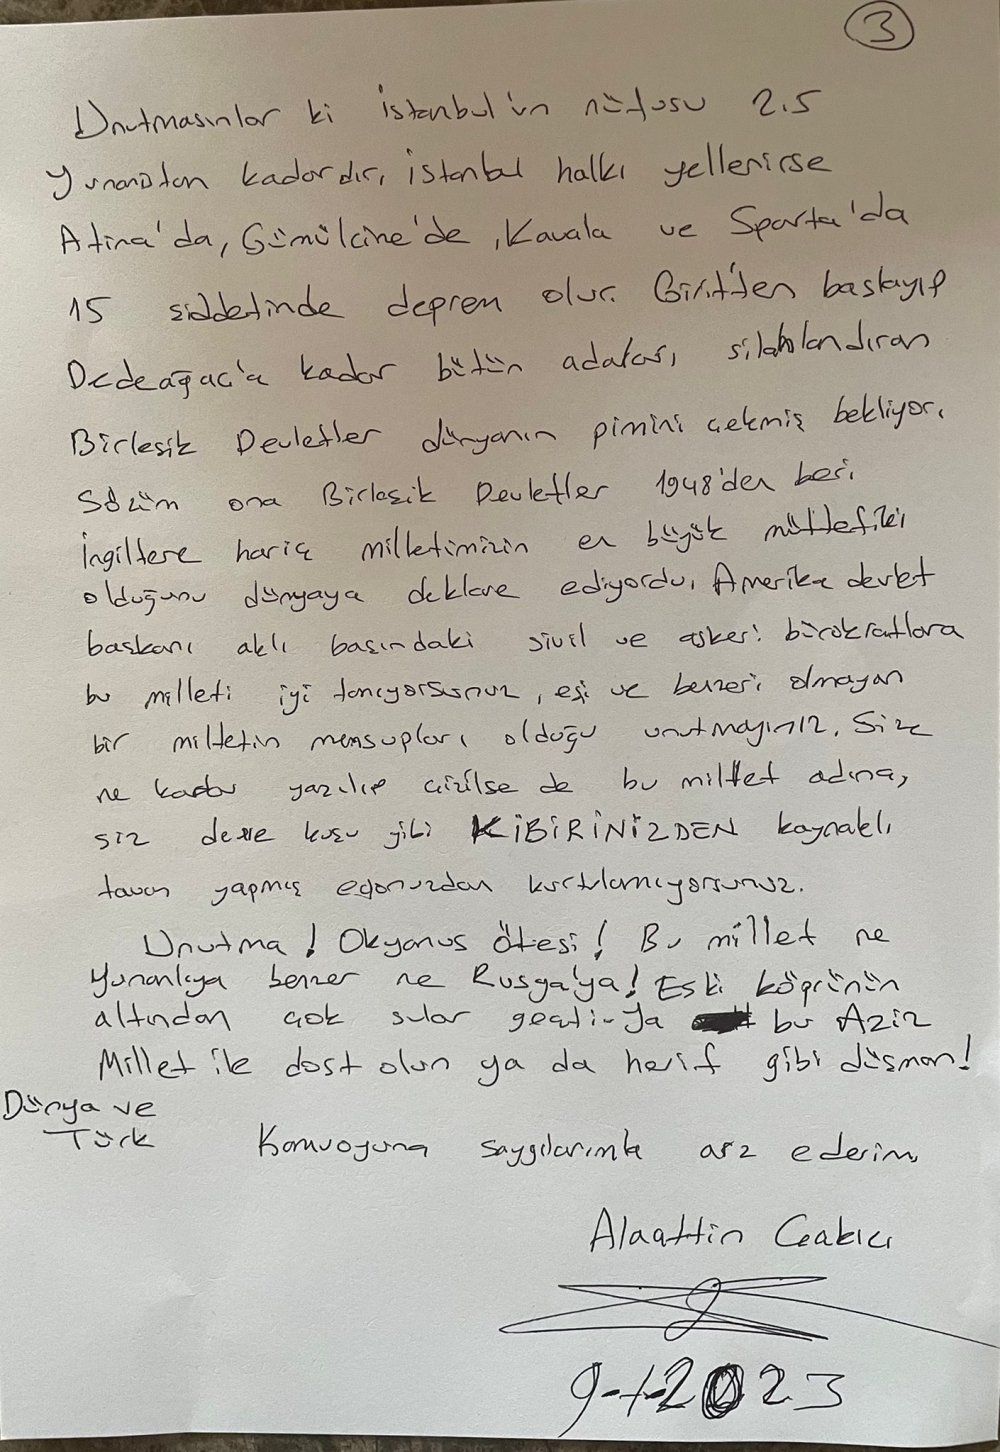 3
Unutmasınlar ki istanbul'un nüfusu 2.5
Yunanistan kadardır, istanbul halkı yellenirse
Atina'da, Gümülcine'de, Kavala ve Sparta'da
15 şiddetinde deprem olur. Girit'ten başlayıp
Dedeağac'a kadar bütün adaları, silahlandıran
Birleşik Devletler dünyanın pimini çekmiş bekliyor.
Sözüm ona Birleşik Devletler 1948'den beri
İngiltere hariç milletimizin en büyük müttefiki
olduğunu dünyaya deklare ediyordu. Amerika devlet
başkanı aklı başındaki sivil ve askeri bürokratlara
bu milleti iyi tanıyorsunuz, eşi ve benzeri olmayan
bir milletin mensupları olduğu unutmayınız. Size
ne kadar yazılıp çizilse de bu millet adına,
siz deve kuşu gibi KİBİRİNİZDEN kaynaklı
tavan yapmış egonuzdan kurtulamıyorsunuz.
Unutma! Okyanus ötesi! Bu millet ne
Yunanlıya benzer ne Rusya'ya! Eski köprünün
altından çok sular geçti-Ya bu Aziz
Millet ile dost olun ya da herif gibi düşman!
Dünya ve
Türk Kamuoyuna saygılarımla arz ederim.
Alaattin Çakıcı
9-1-2023